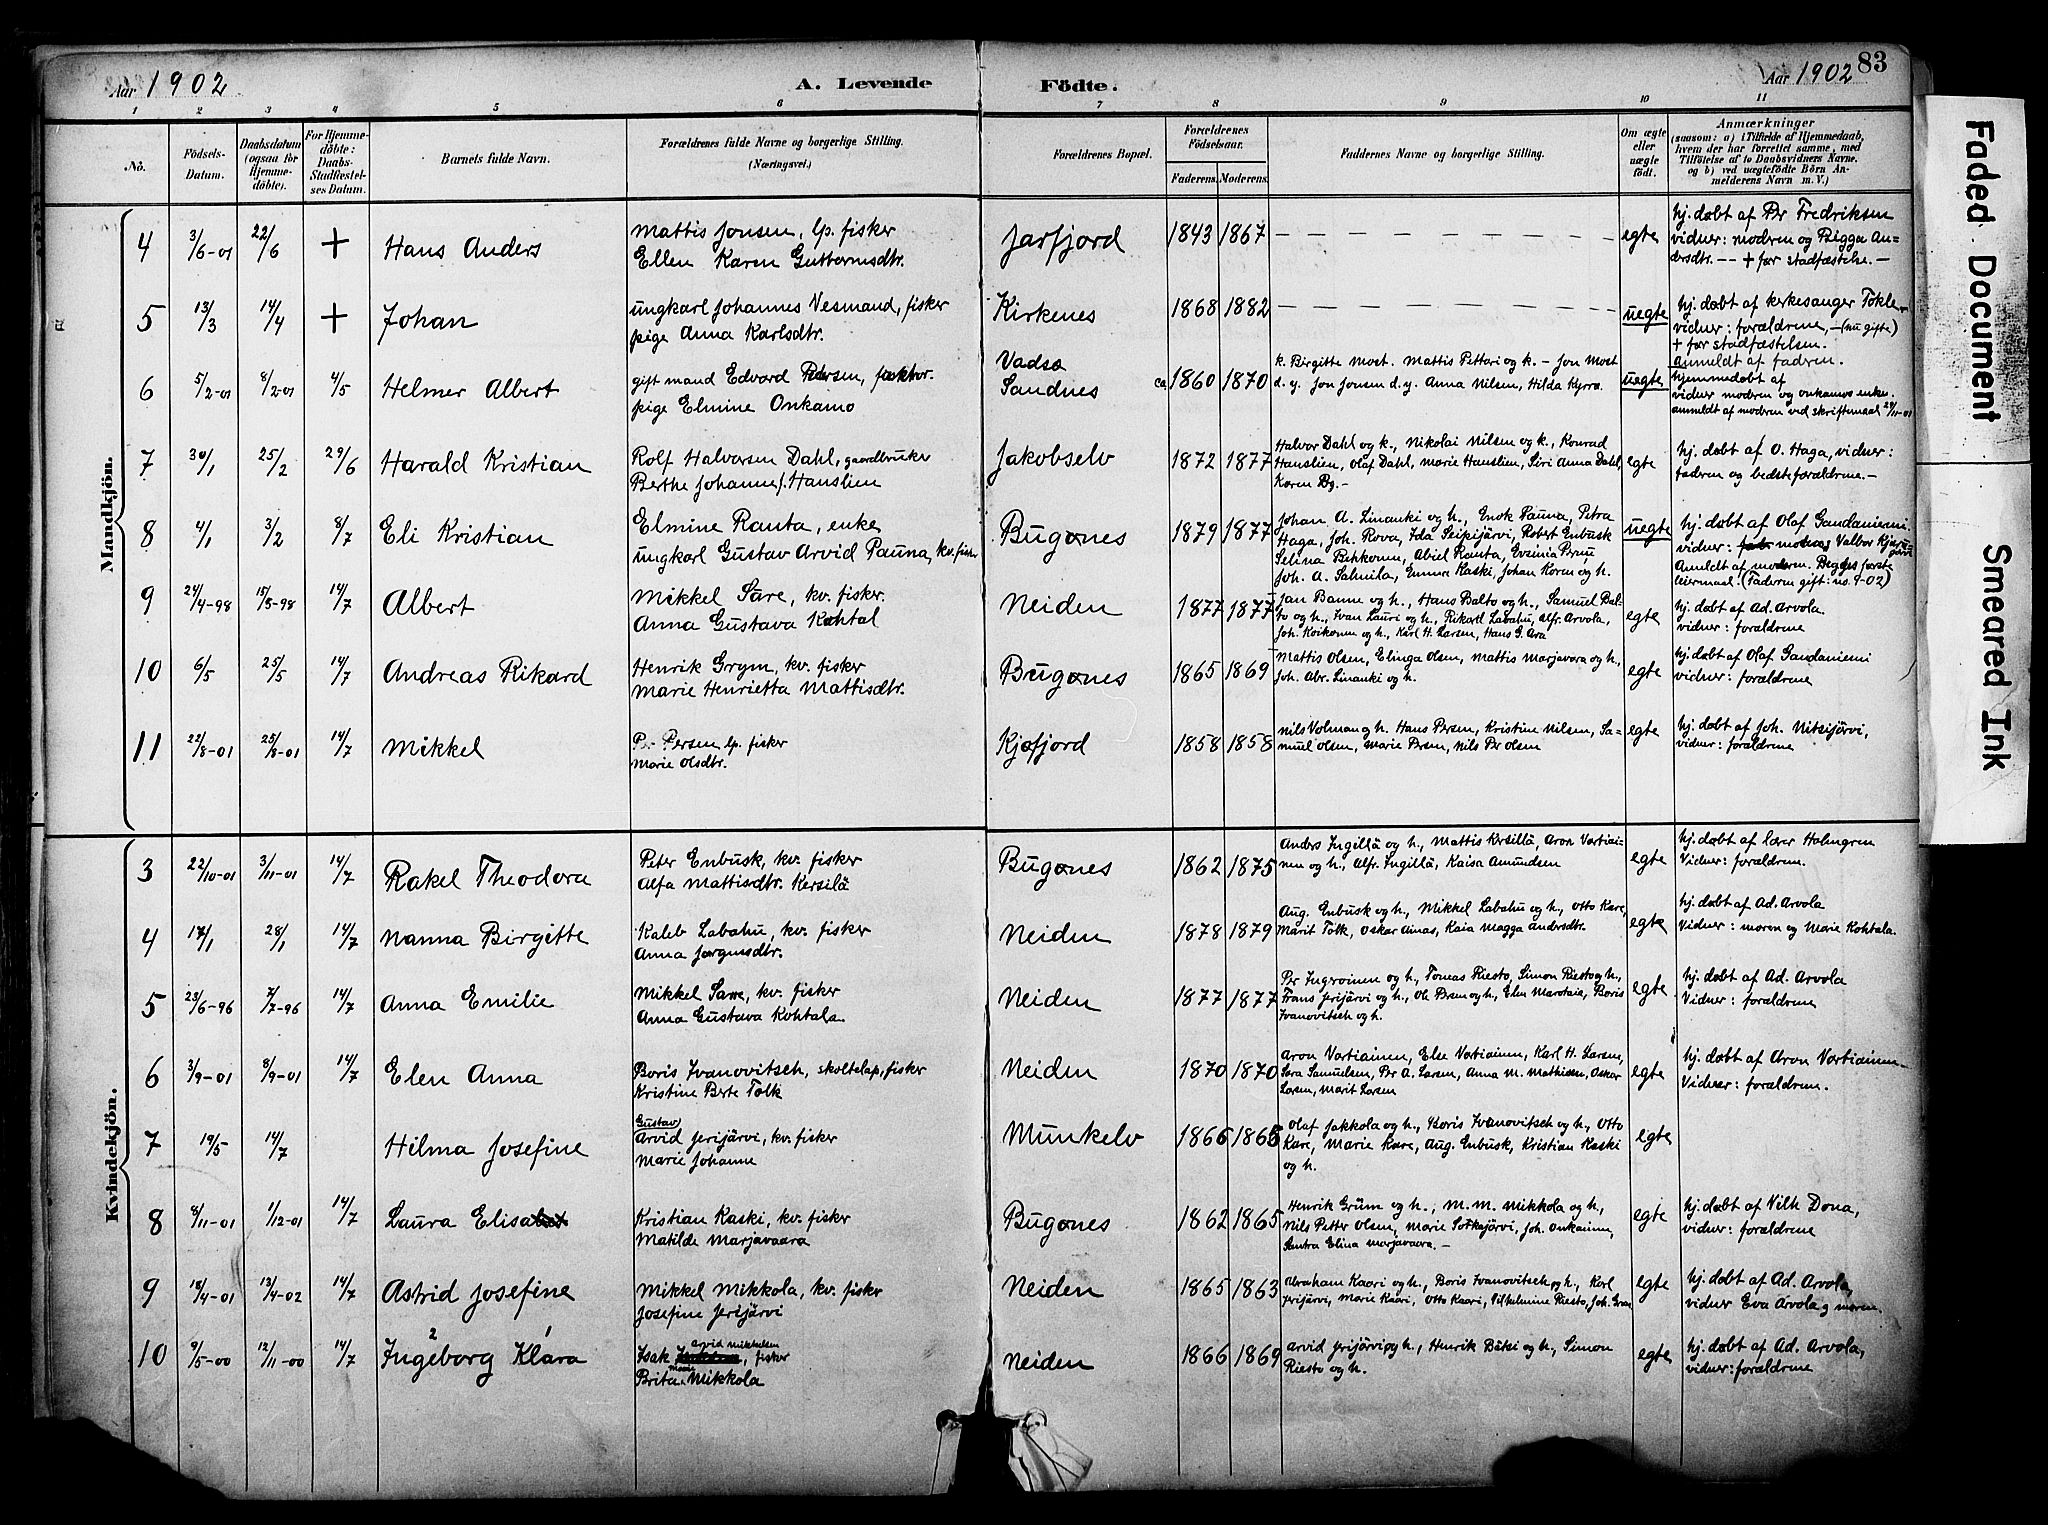 Aar 1902
A. Levende
Födte.
Aar 1902
83
1 2 3 4 5 6 7 8 9 10 11
No.
Födsels-Datum.
Daabsdatum (ogsaa for Hjemme-döbte).
For Hjemme-döbte: Daabs-Stadfæstel-ses Datum.
Barnets fulde Navn.
Forældrenes fulde Navne og borgerlige Stilling. (Næringsvei.)
Forældrenes Bopæl.
Forældrenes Födselsaar.
Faderens. Moderens.
Faddernes Navne og borgerlige Stilling.
Om ægte eller uægte födt.
Anmærkninger
(saasom: a) i Tilfælde af Hjemmedaab, hvem der har forrettet samme, med Tilföielse af to Daabsvidners Navne, og b) ved uægtefödte Börn Anmelderens Navn m. V.)
Mandkjön.
4 3/6-01 22/6 + Hans Anders
Mattis Jonsen, lp. fisker
Ellen Karen Guttormsdtr.
Jarfjord 1843 1867 egte
hj. døbt af Per Fredriksen
vidner: modren og Bigga An-
dersdtr. -- + før stadfæstelse. -
5 13/3 14/4 + Johan
ungkarl Johannes Vesmand, fisker
pige Anna Karlsdtr.
Kirkenes 1868 1882 uegte
hj. døbt af kerkesanger Tokle
vidner: forældrene, - (nu gifte)
+ før stadfæstelsen.
anmeldt af fadren.
6 5/2-01 8/2-01 4/5 Helmer Albert
gift mand Edvard Petersen,
pige Elmine Onkamo
Vadsø
Sandnes ca 1860 1870
k. Birgitte Most. Mattis Pettari og k. - Jon Most
d. y. Jon Jonsen d. y. Anna Nilsen, Hilda Kyrrø
uegte
hjemmedøbt af
vidner modren og Onkamos enke.
anmeldt af modren ved skriftemaal 24/11-01
7 30/1 25/2 29/6 Harald Kristian
Rolf Halvorsen Dahl, gaardbruker
Berthe Johanne J. Hanslien
Jakobselv 1872 1877
Halvor Dahl og k., Nikolai Nilsen og k., Konrad
Hanslien, Olaf Dahl, Marie Hanslien, Siri Anna Dahl,
Karen By. -
egte
hj. døbt af O. Haga, vidner:
fadren og bedsteforældrene. -
8 4/1 3/2 8/7 Eli Kristian
Elmine Ranta, enke
ungkarl Gustav Arvid Pauna, kv. fisker
Bugønes 1879 1877
Johan A. Linanki og h., Enok Pauna, Petra
Haga, Joh. Rova, Ida Seipijärvi, Robert Enbusk
Selina Pehkonen, Abiel Ranta,
Joh. A. Salmila, Emma Kaski, Johan Koren og h.
uegte
hj. døbt af Olaf Gandaniemi
vidner: Valbor
Anmeldt af modren. Begges første
leiermaal. (Faderen gift: no. 9-02)
9 24/4-98 15/5-98 14/7 Albert
Mikkel Sare, kv. fisker.
Anna Gustava Kohtal
Neiden 1877 1877
Jan Banne og h., Hans Balto og h., Samuel Bal-
to og h., Ivan Lauri og h., Rikard Labahu, Alfr. Arvola,
Joh. Koikonen og h., Karl H. Larsen, Hans G. Ara
egte
hj. døbt af Ad. Arvola.
vidner: forældrene
10 6/5 25/5 14/7 Andreas Rikard
Henrik Grym, kv. fisker
Marie Henrietta Mattisdtr.
Bugønes 1865 1869
Mattis Olsen, Elinga Olsen, Mattis Marjavara og h.,
Joh. Abr. Linanki og h.
egte
hj. døbt af Olaf Gandaniemi
vidner: forældrene
11 22/8-01 25/8-01 14/7 Mikkel
Per Persen lp. fisker
Marie Olsdtr.
Kjøfjord 1858 1858
Nils Volman og h. Hans Persen, Kristine Nilsen, Sa-
muel Olsen, Marie Persen, Nils Per Olsen
egte
hj. døbt af Joh. Nitsijärvi,
vidner: forældrene
Kvindekjön.
3 22/10-01 3/11-01 14/7 Rakel Theodora
Peter Enbusk, kv. fisker
Alfa Mattisdtr. Kersilä
Bugønes 1862 1875
Anders Ingillä og h., Mattis Kersillä, Aron Vartiai-
nen og h., Alfr. Ingillä, Kaisa Amundsen
egte
hj. døbt af lærer Holmgren
Vidner: forældrene.
4 17/1 28/1 14/7 Nanna Birgitte
Kaleb Labahu, kv. fisker
Anna Jørgensdtr.
Neiden 1878 1879
Aug. Enbusk og h., Mikkel Labahu og h., Otto Kare,
Marit Tolk, Oskar Ainas, Kaia Magga Andersdtr.
egte
hj. døbt af Ad. Arvola
Vidner: moren og Marie Kohtala.
5 23/6-96 7/7-96 14/7 Anna Emilie
Mikkel Sare, kv. fisker
Anna Gustava Kohtala.
Neiden 1877 1877
Per Ingroinen og h., Tomas Riesto, Simon Riesto og h.,
Frans Jerijärvi og h., Ole Persen og h., Elen Marotaia, Boris
Ivanovitsch og h.
egte
hj. døbt af Ad. Arvola
Vidner: forældrene
6 3/9-01 8/9-01 14/7 Elen Anna
Boris Ivanovitsch, skoltelap, fisker
Kristine Berte Tolk
Neiden 1870 1870
Aron Vartiainen, Else Vartiainen, Karl H. Larsen,
Sara Samuelsen, Per A. Larsen, Anna M. Mathisen, Oskar
Larsen, Marit Larsen
egte
hj. døbt af Aron Vartiainen
Vidner: forældrene.
7 19/5 14/7 Hilma Josefine
Gustav
Arvid Jerijärvi, kv. fisker
Marie Johanne
Munkelv 1866 1865
Olaf Jakkola og h., Boris Ivanovitsch og h., Otto
Kare, Marie Kare, Aug. Enbusk, Kristian Kaski
og h.
egte
8 8/11-01 1/12-01 14/7 Laura Elisabet
Kristian Kaski, kv. fisker
Matilde Marjavaara
Bugønes 1862 1865
Henrik Grüm og h., M. M. Mikkola og h.,
Nils Petter Olsen, Marie Sotkajärvi, Joh. Onkamm,
Santra Elina Marjavaara. -
egte
hj. døbt af Vilh. Dona,
vidner: forældrene
9 18/4-01 13/4-02 14/7 Astrid Josefine
Mikkel Mikkola, kv. fisker
Josefine Jerijärvi
Neiden 1865 1863
Abraham Kaari og h., Boris Ivanovitsch og h., Karl
Jerijärvi, Marie Kaari, Otto Kaari, Vilhelmine Riesto, Joh. Gran
egte
hj. døbt af Ad. Arvola,
vidner Eva Arvola og moren.
10 9/5-00 12/11-00 14/7 Ingeborg Klara
2 1
Arvid Mikkelsen
Isak , fisker
Marie
Brita Mikkola
Neiden 1866 1869
Arvid Jerijärvi og h., Henrik Bäki og h., Simon
Riesto og h.
egte
hj. døbt af Ad. Arvola,
vidner: forældrene
Faded Document
Smeared Ink